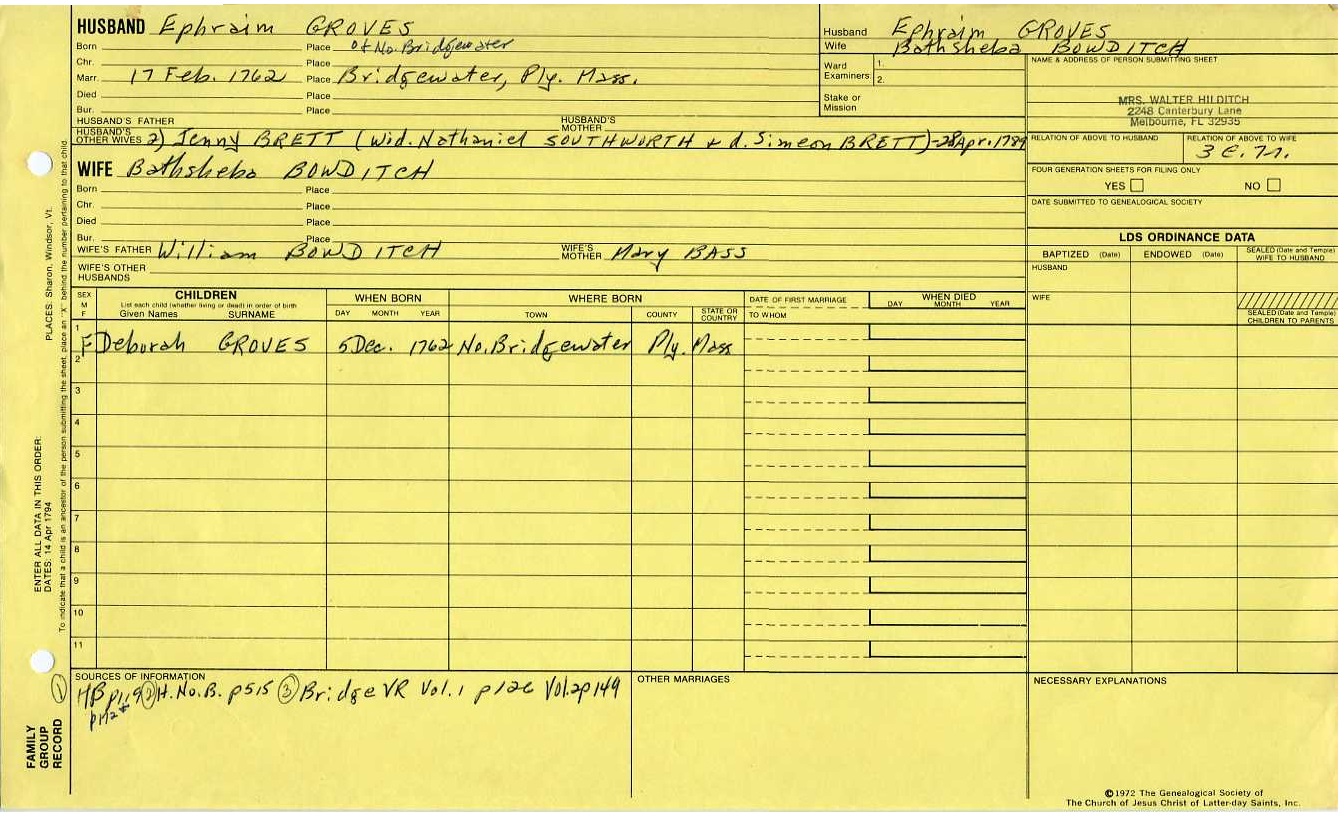 HUSBAND Ephraim GROVES
Born Place of No. Bridgewater
Chr. Place
Marr. 17 Feb. 1762 Place Bridgewater, Ply. Mass.
Died Place
Bur. Place
HUSBAND'S FATHER HUSBAND'S MOTHER
HUSBAND'S OTHER WIVES 2) Jenny BRETT (Wid. Nathaniel SOUTHWORTH & d. Simeon BRETT)-28 Apr. 1789
WIFE Bathsheba BOWDITCH
Born Place
Chr. Place
Died Place
Bur. Place
WIFE'S FATHER William BOWDITCH WIFE'S MOTHER Mary BASS
WIFE'S OTHER HUSBANDS
Husband Ephraim GROVES
Wife Bathsheba BOWDITCH
Ward Examiners: 1. 2.
Stake or Mission
NAME & ADDRESS OF PERSON SUBMITTING SHEET
MRS. WALTER HILDITCH
2248 Canterbury Lane
Melbourne, FL 32935
RELATION OF ABOVE TO HUSBAND RELATION OF ABOVE TO WIFE
FOUR GENERATION SHEETS FOR FILING ONLY
YES NO
DATE SUBMITTED TO GENEALOGICAL SOCIETY
LDS ORDINANCE DATA
BAPTIZED (Date) ENDOWED (Date) SEALED (Date and Temple) WIFE TO HUSBAND
HUSBAND
WIFE
SEALED (Date and Temple) CHILDREN TO PARENTS
SEX M F CHILDREN WHEN BORN WHERE BORN DATE OF FIRST MARRIAGE WHEN DIED
List each child (whether living or dead) in order of birth
Given Names SURNAME DAY MONTH YEAR TOWN COUNTY STATE OR COUNTRY TO WHOM DAY MONTH YEAR
1 F Deborah GROVES 5 Dec. 1762 No. Bridgewater Ply. Mass
2
3
4
5
6
7
8
9
10
11
SOURCES OF INFORMATION
① HB p119 ② H. No. B. p515 ③ Bridge VR Vol. 1 p126 Vol. 2 p149
OTHER MARRIAGES
NECESSARY EXPLANATIONS
©1972 The Genealogical Society of
The Church of Jesus Christ of Latter-day Saints, Inc.
FAMILY GROUP RECORD
ENTER ALL DATA IN THIS ORDER:
DATES: 14 Apr 1794
PLACES: Sharon, Windsor, Vt.
To indicate that a child is an ancestor of the person submitting the sheet, place an "X" behind the number pertaining to that child.